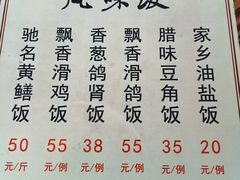 味饭
驰名黄鳝饭
飘香滑鸡饭
香葱鸽肾饭
飘香滑鸽饭
腊味豆角饭
家乡油盐饭
50 55 38 55 35 20
元/斤 元/例 元/例 元/例 元/例 元/例